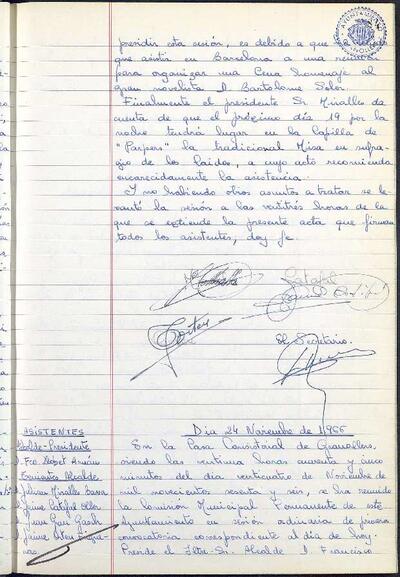 presidir esta sesión, es debido a que
que asistir en Barcelona a una reunión
para organizar una Cena homenaje al
gran novelista D. Bartolomé Soler
Finalmente el presidente Sr. Miralles da
cuenta de que el próximo día 19 por la
noche tendrá lugar en la Capilla de
"Parpers" la tradicional Misa en sufra-
gio de los Caidos, a cuyo acto recomienda
encarecidamente la asistencia.
Y no habiendo otros asuntos a tratar se le-
vantó la sesión a las veintitrés horas de la
que se extiende la presente acta que firman
todos los asistentes, doy fe.
El Secretario.
ASISTENTES
Alcalde-Presidente
D. Fco. Llobet
Tenientes Alcalde
Miralles
Jaime
Juan Gau
Jaime
Dia 24 Noviembre de 1966
En la Casa Consistorial de Granollers,
siendo las veintiuna horas cuarenta y cinco
minutos del dia veinticuatro de Noviembre de
mil novecientos sesenta y seis, se ha reunido
la Comisión Municipal Permanente de este
Ayuntamiento en sesión ordinaria de primera
convocatoria correspondiente al dia de hoy.
Preside el Iltre. Sr. Alcalde D. Francisco